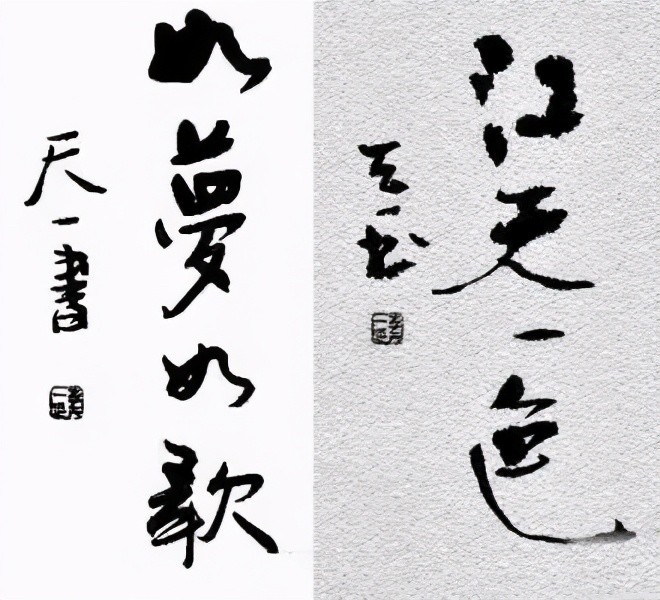 江天一色
天一书
如夢如歌
天一書